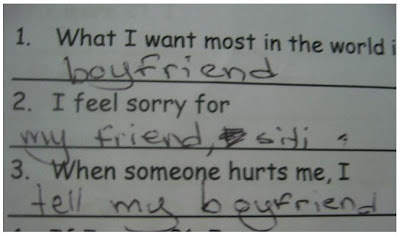 1. What I want most in the world i
boyfriend
2. I feel sorry for
my friend, siti
3. When someone hurts me, I
tell my boyfriend